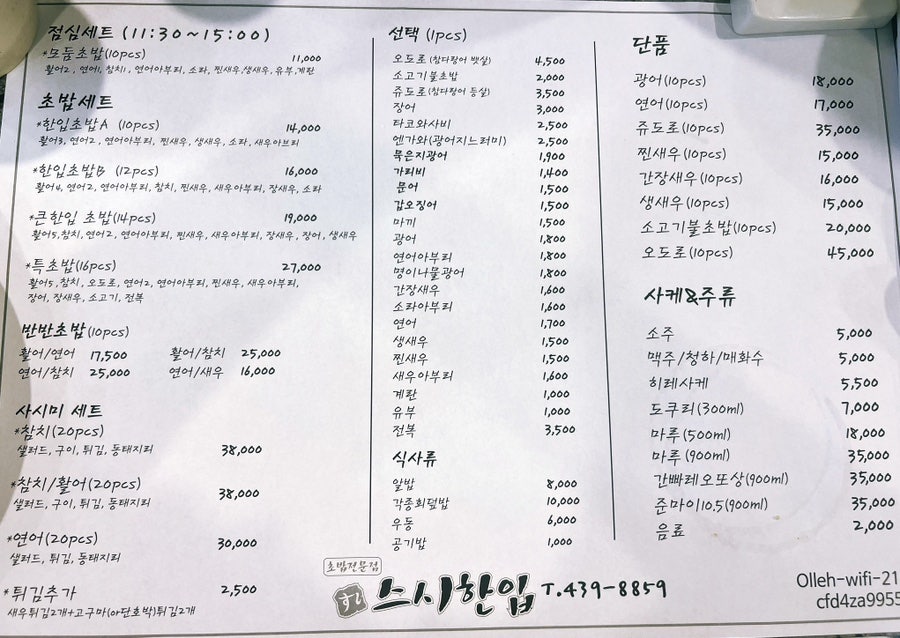 점심세트 (11:30~15:00)
*모둠초밥(10pcs) 11,000
활어2, 연어1, 참치1, 연어아부리, 소라, 찐새우, 생새우, 유부, 계란
초밥세트
*한입초밥A (10pcs) 14,000
활어3, 연어2, 연어아부리, 찐새우, 생새우, 소라, 새우아브리
*한입초밥B (12pcs) 16,000
활어4, 연어2, 연어아부리, 참치, 찐새우, 새우아부리, 장새우, 소라
*큰한입 초밥(14pcs) 19,000
활어5, 참치, 연어2, 연어아부리, 찐새우, 새우아부리, 장새우, 장어, 생새우
*특초밥(16pcs) 27,000
활어5, 참치, 오도로, 연어2, 연어아부리, 찐새우, 새우아부리,
장어, 장새우, 소고기, 전복
반반초밥(10pcs)
활어/연어 17,500 활어/참치 25,000
연어/참치 25,000 연어/새우 16,000
사시미 세트
*참치(20pcs)
샐러드, 구이, 튀김, 동태지리 38,000
*참치/활어(20pcs)
샐러드, 구이, 튀김, 동태지리 38,000
*연어(20pcs) 30,000
샐러드, 튀김, 동태지리
*튀김추가 2,500
새우튀김2개+고구마(or단호박)튀김2개
선택 (1pcs)
오도로(참다랑어 뱃살) 4,500
소고기불초밥 2,000
쥬도로(참다랑어 등살) 3,500
장어 3,000
타코와사비 2,500
엔가와(광어지느러미) 2,500
묵은지광어 1,900
가리비 1,400
문어 1,500
갑오징어 1,500
마끼 1,500
광어 1,800
연어아부리 1,800
명이나물광어 1,800
간장새우 1,600
소라아부리 1,600
연어 1,700
생새우 1,500
찐새우 1,500
새우아부리 1,600
계란 1,000
유부 1,000
전복 3,500
식사류
알밥 8,000
각종회덮밥 10,000
우동 6,000
공기밥 1,000
단품
광어(10pcs) 18,000
연어(10pcs) 17,000
쥬도로(10pcs) 35,000
찐새우(10pcs) 15,000
간장새우(10pcs) 16,000
생새우(10pcs) 15,000
소고기불초밥(10pcs) 20,000
오도로(10pcs) 45,000
사케&주류
소주 5,000
맥주/청하/매화수 5,000
히레사케 5,500
도쿠리(300ml) 7,000
마루(500ml) 18,000
마루(900ml) 35,000
간빠레오또상(900ml) 35,000
준마이10.5(900ml) 35,000
음료 2,000
초밥전문점
스시한입 T.439-8859
Olleh-wifi-21
cfd4za9955